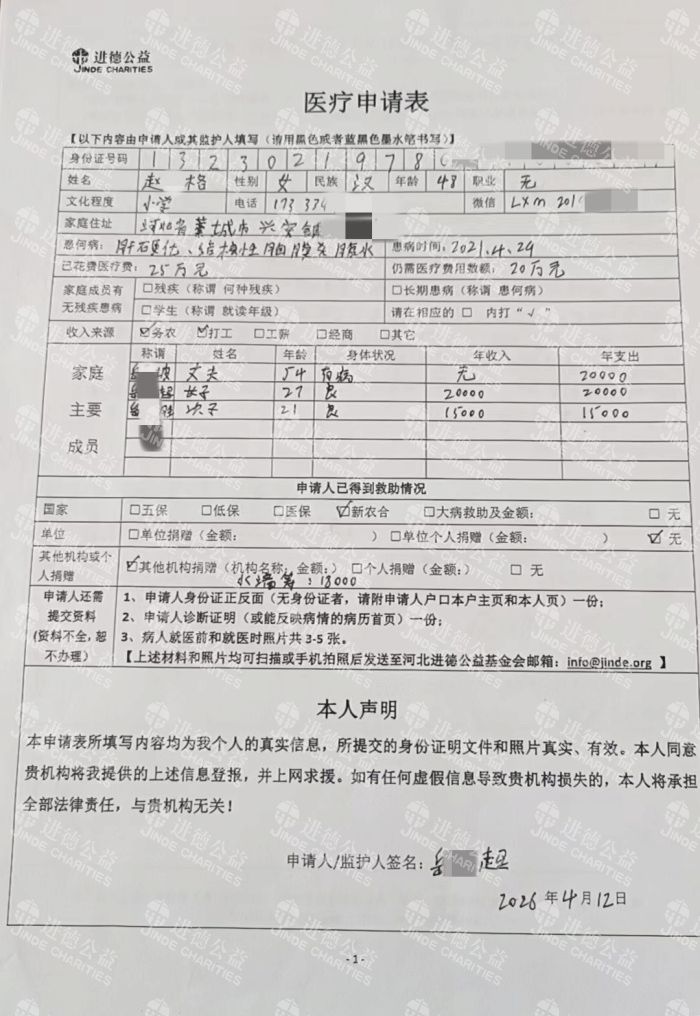 进德公益
JINDE CHARITIES
医疗申请表
【以下内容由申请人或其监护人填写（请用黑色或者蓝黑色墨水笔书写）】
身份证号码 1 3 2 3 0 2 1 9 7 8
姓名 赵 格 性别 女 民族 汉 年龄 48 职业 无
文化程度 小学 电话 173 334 微信 LXm 201
家庭住址 河北省藁城市兴安镇
患何病：肝硬化、结核性脑膜炎 腹水 患病时间：2021.4.29
已花费医疗费：25万元 仍需医疗费用数额：20万元
家庭成员有无残疾患病 □残疾（称谓 何种残疾） □长期患病（称谓 患何病）
□学生（称谓 就读年级） 请在相应的 □ 内打“√”
收入来源 ☑务农 ☑打工 □工薪 □经商 □其它
家庭主要成员 称谓 姓名 年龄 身体状况 年收入 年支出
岳 丈夫 54 有病 无 20000
岳 超 长子 27 良 20000 20000
岳 次子 21 良 15000 15000
申请人已得到救助情况
国家 □五保 □低保 □医保 ☑新农合 □大病救助及金额： □ 无
单位 □单位捐赠（金额： ） □单位个人捐赠（金额： ） ☑ 无
其他机构或个人捐赠 ☑其他机构捐赠（机构名称：金额：） □个人捐赠（金额：） □ 无
水滴筹：18000
申请人还需提交资料（资料不全，恕不办理）
1、申请人身份证正反面（无身份证者，请附申请人户口本户主页和本人页）一份；
2、申请人诊断证明（或能反映病情的病历首页）一份；
3、病人就医前和就医时照片共 3-5 张。
【上述材料和照片均可扫描或手机拍照后发送至河北进德公益基金会邮箱：info@jinde.org 】
本人声明
本申请表所填写内容均为我个人的真实信息，所提交的身份证明文件和照片真实、有效。本人同意
贵机构将我提供的上述信息登报，并上网求援。如有任何虚假信息导致贵机构损失的，本人将承担
全部法律责任，与贵机构无关！
申请人/监护人签名：岳 超
2026 年 4 月 12 日
- 1 -